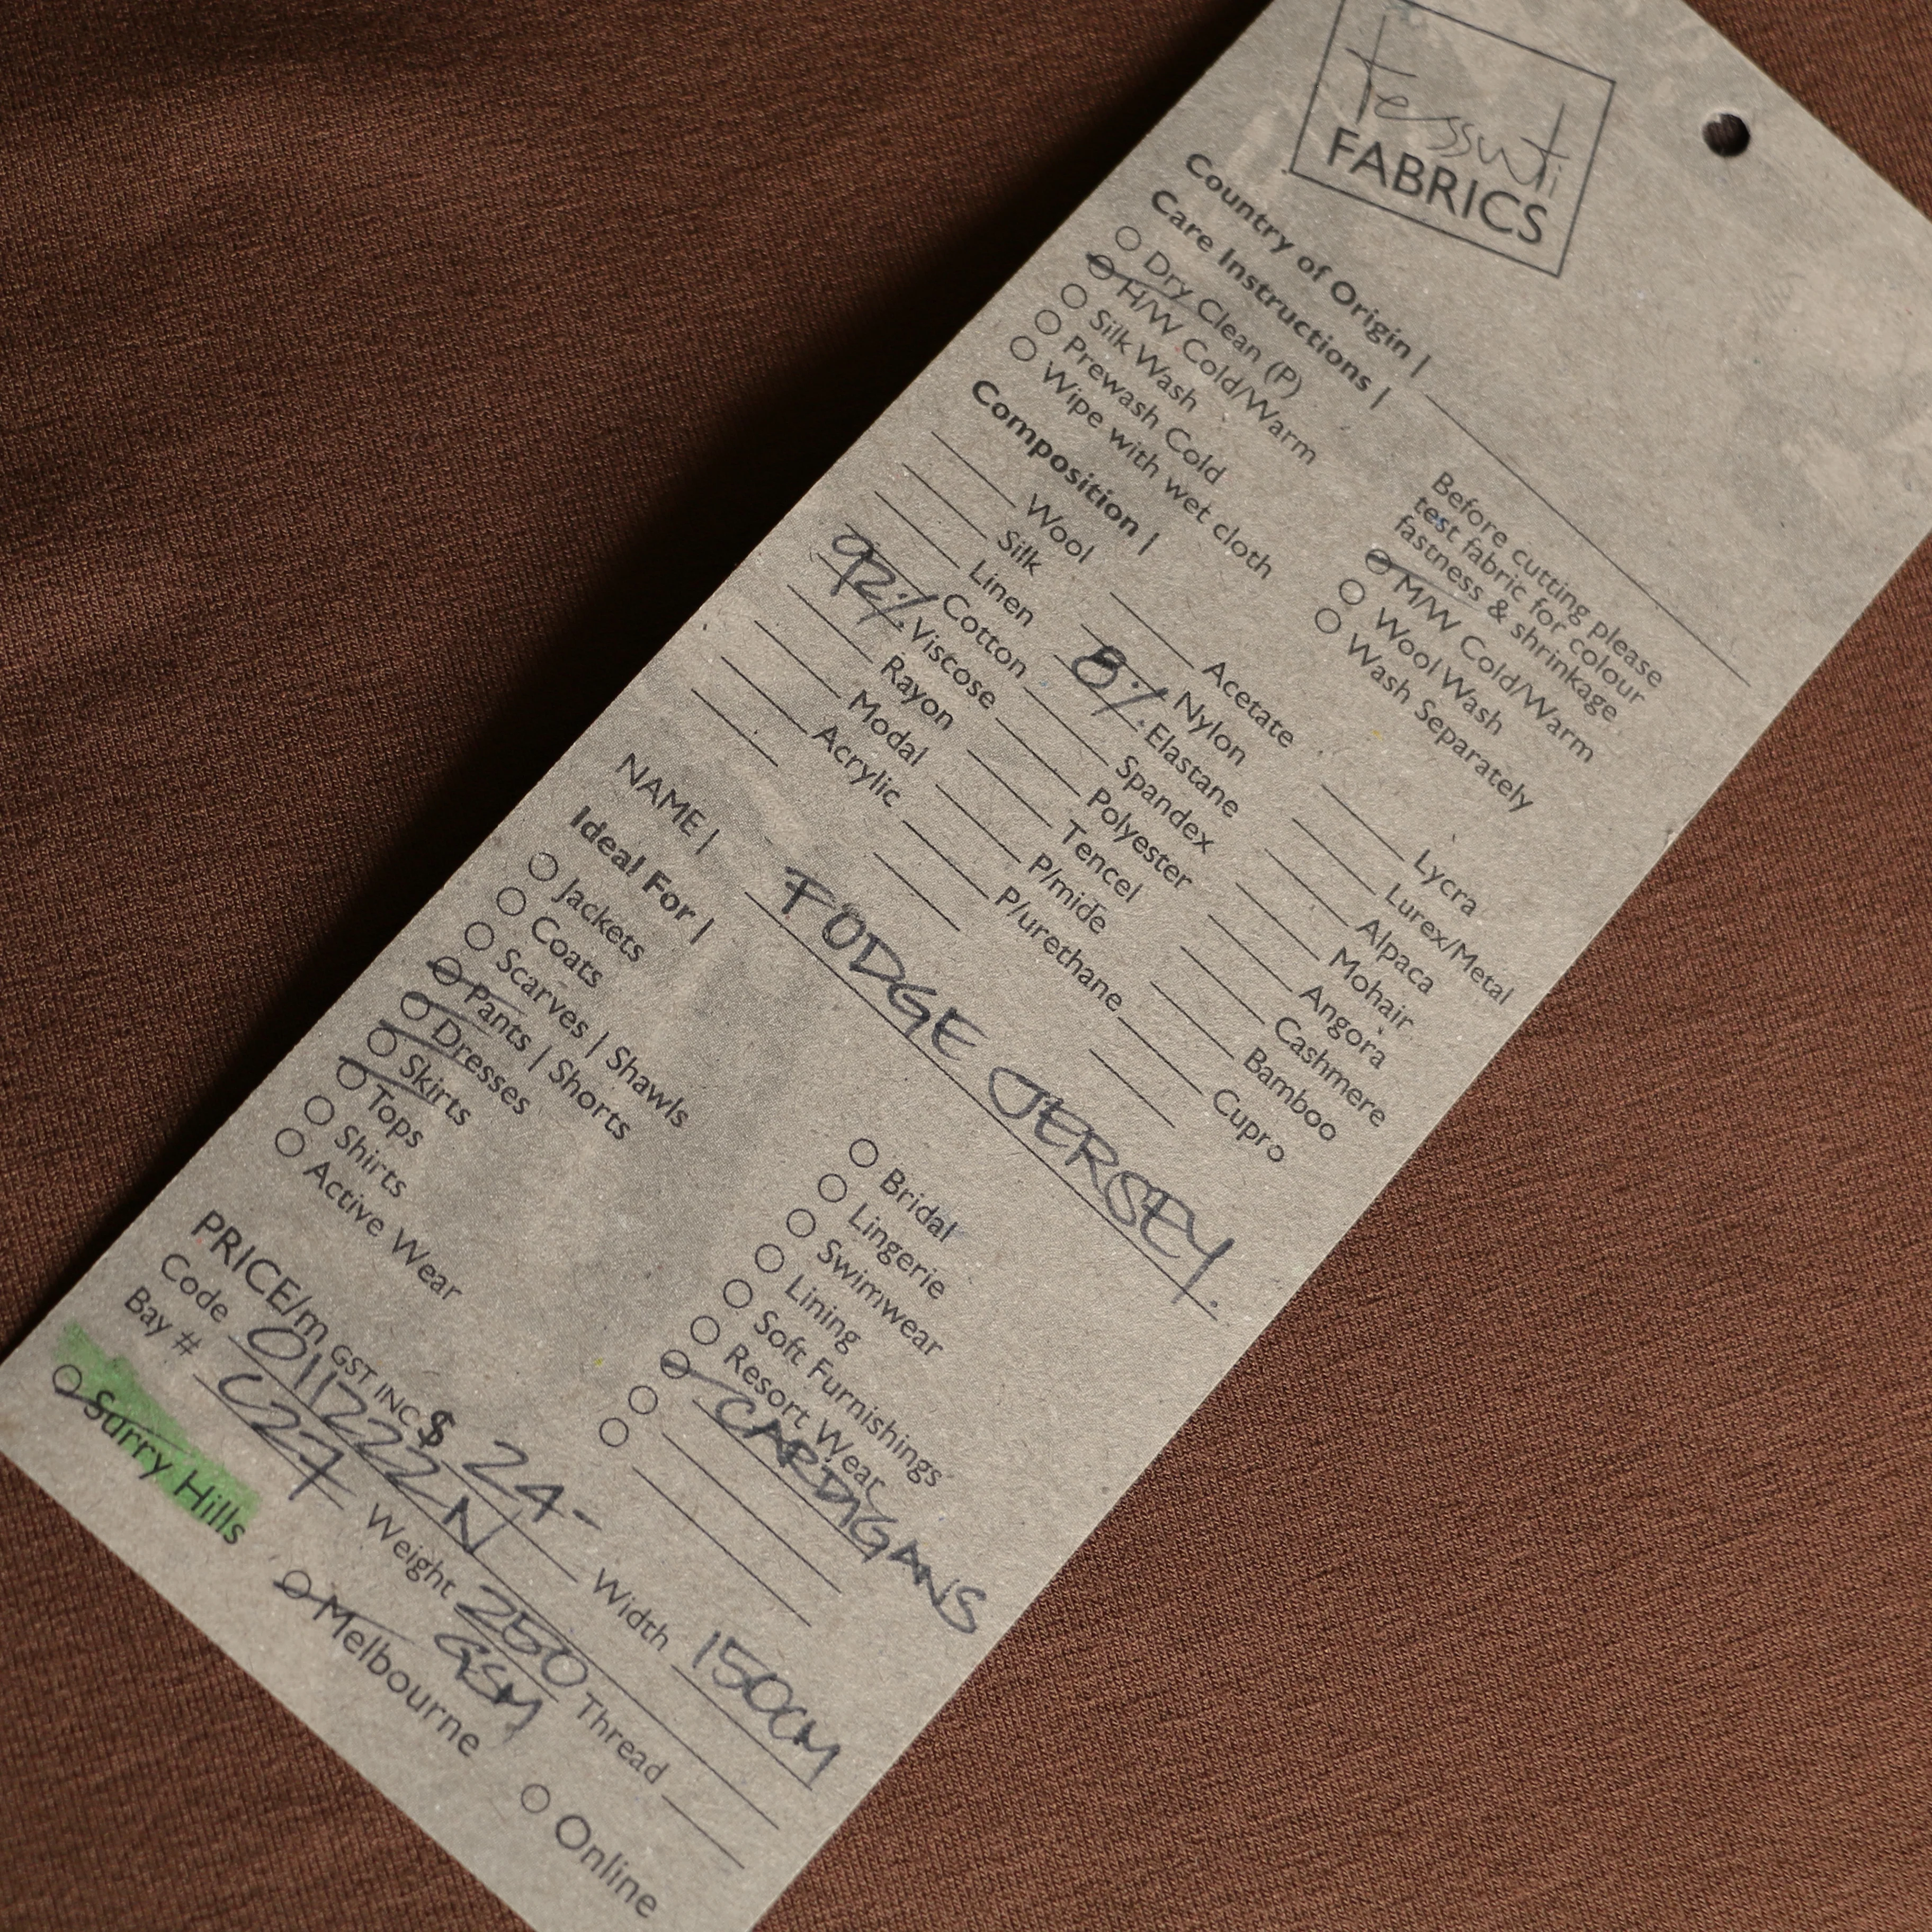 tessuti
FABRICS
Country of Origin |
Care Instructions |
Dry Clean (P)
H/W Cold/Warm
Silk Wash
Prewash Cold
Wipe with wet cloth
Before cutting please
test fabric for colour
fastness & shrinkage.
M/W Cold/Warm
Wool Wash
Wash Separately
Composition |
Wool
Silk
Linen
Cotton
92% Viscose
Rayon
Modal
Acrylic
Acetate
Nylon
8% Elastane
Spandex
Polyester
Tencel
P/mide
P/urethane
Lycra
Lurex/Metal
Alpaca
Mohair
Angora
Cashmere
Bamboo
Cupro
NAME | FODGE JERSEY.
Ideal For |
Jackets
Coats
Scarves | Shawls
Pants | Shorts
Dresses
Skirts
Tops
Shirts
Active Wear
Bridal
Lingerie
Swimwear
Lining
Soft Furnishings
Resort Wear
CARDIGANS
PRICE/m GST INC $ 24-
Code 011222N Width 150CM
Bay # C27 Weight 250 GSM Thread
Surry Hills Melbourne Online